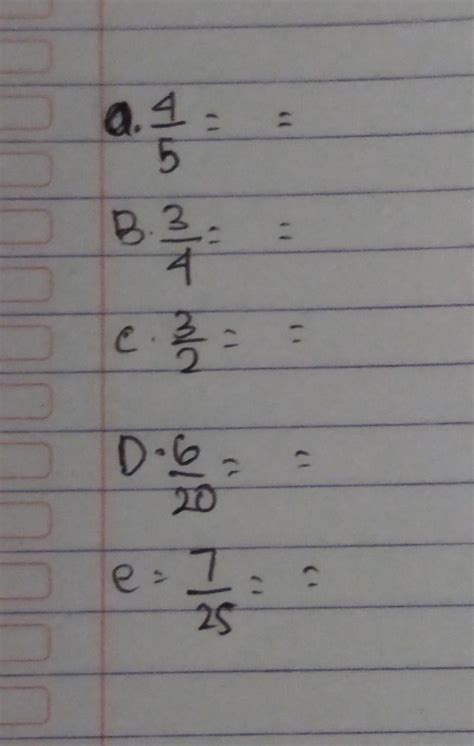 a. 4/5 = =
B. 3/4 = =
c. 3/2 = =
D. 6/20 = =
e = 7/25 = =